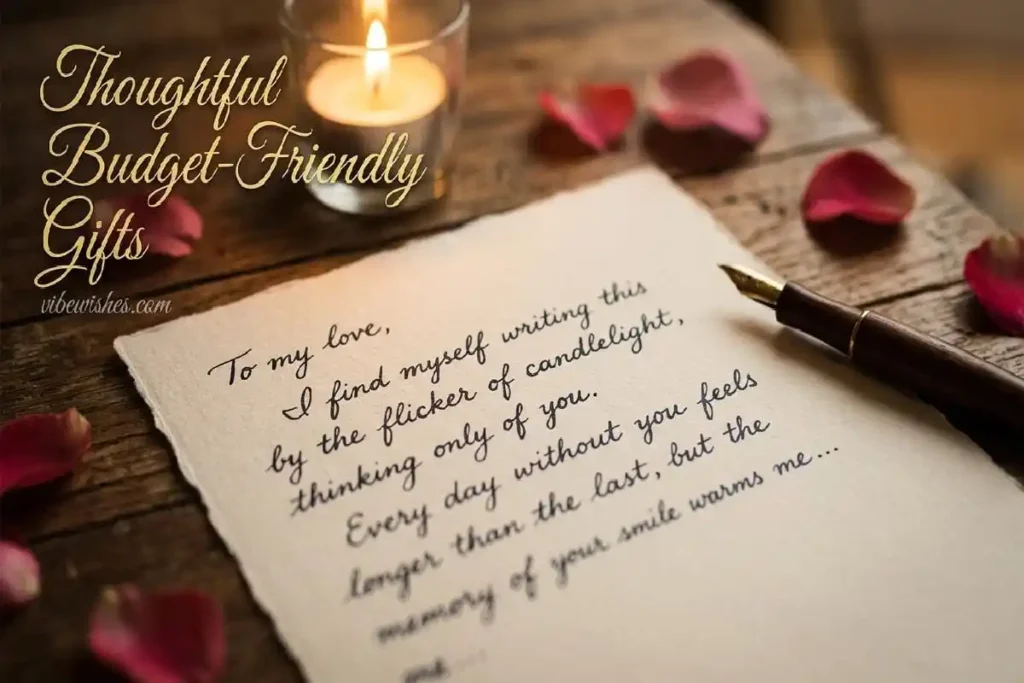 Thoughtful
Budget-Friendly
Gifts
vibewishes.com
To my love,
I find myself writing this
by the flicker of candlelight,
thinking only of you.
Every day without you feels
longer than the last, but the
memory of your smile warms me...
me...